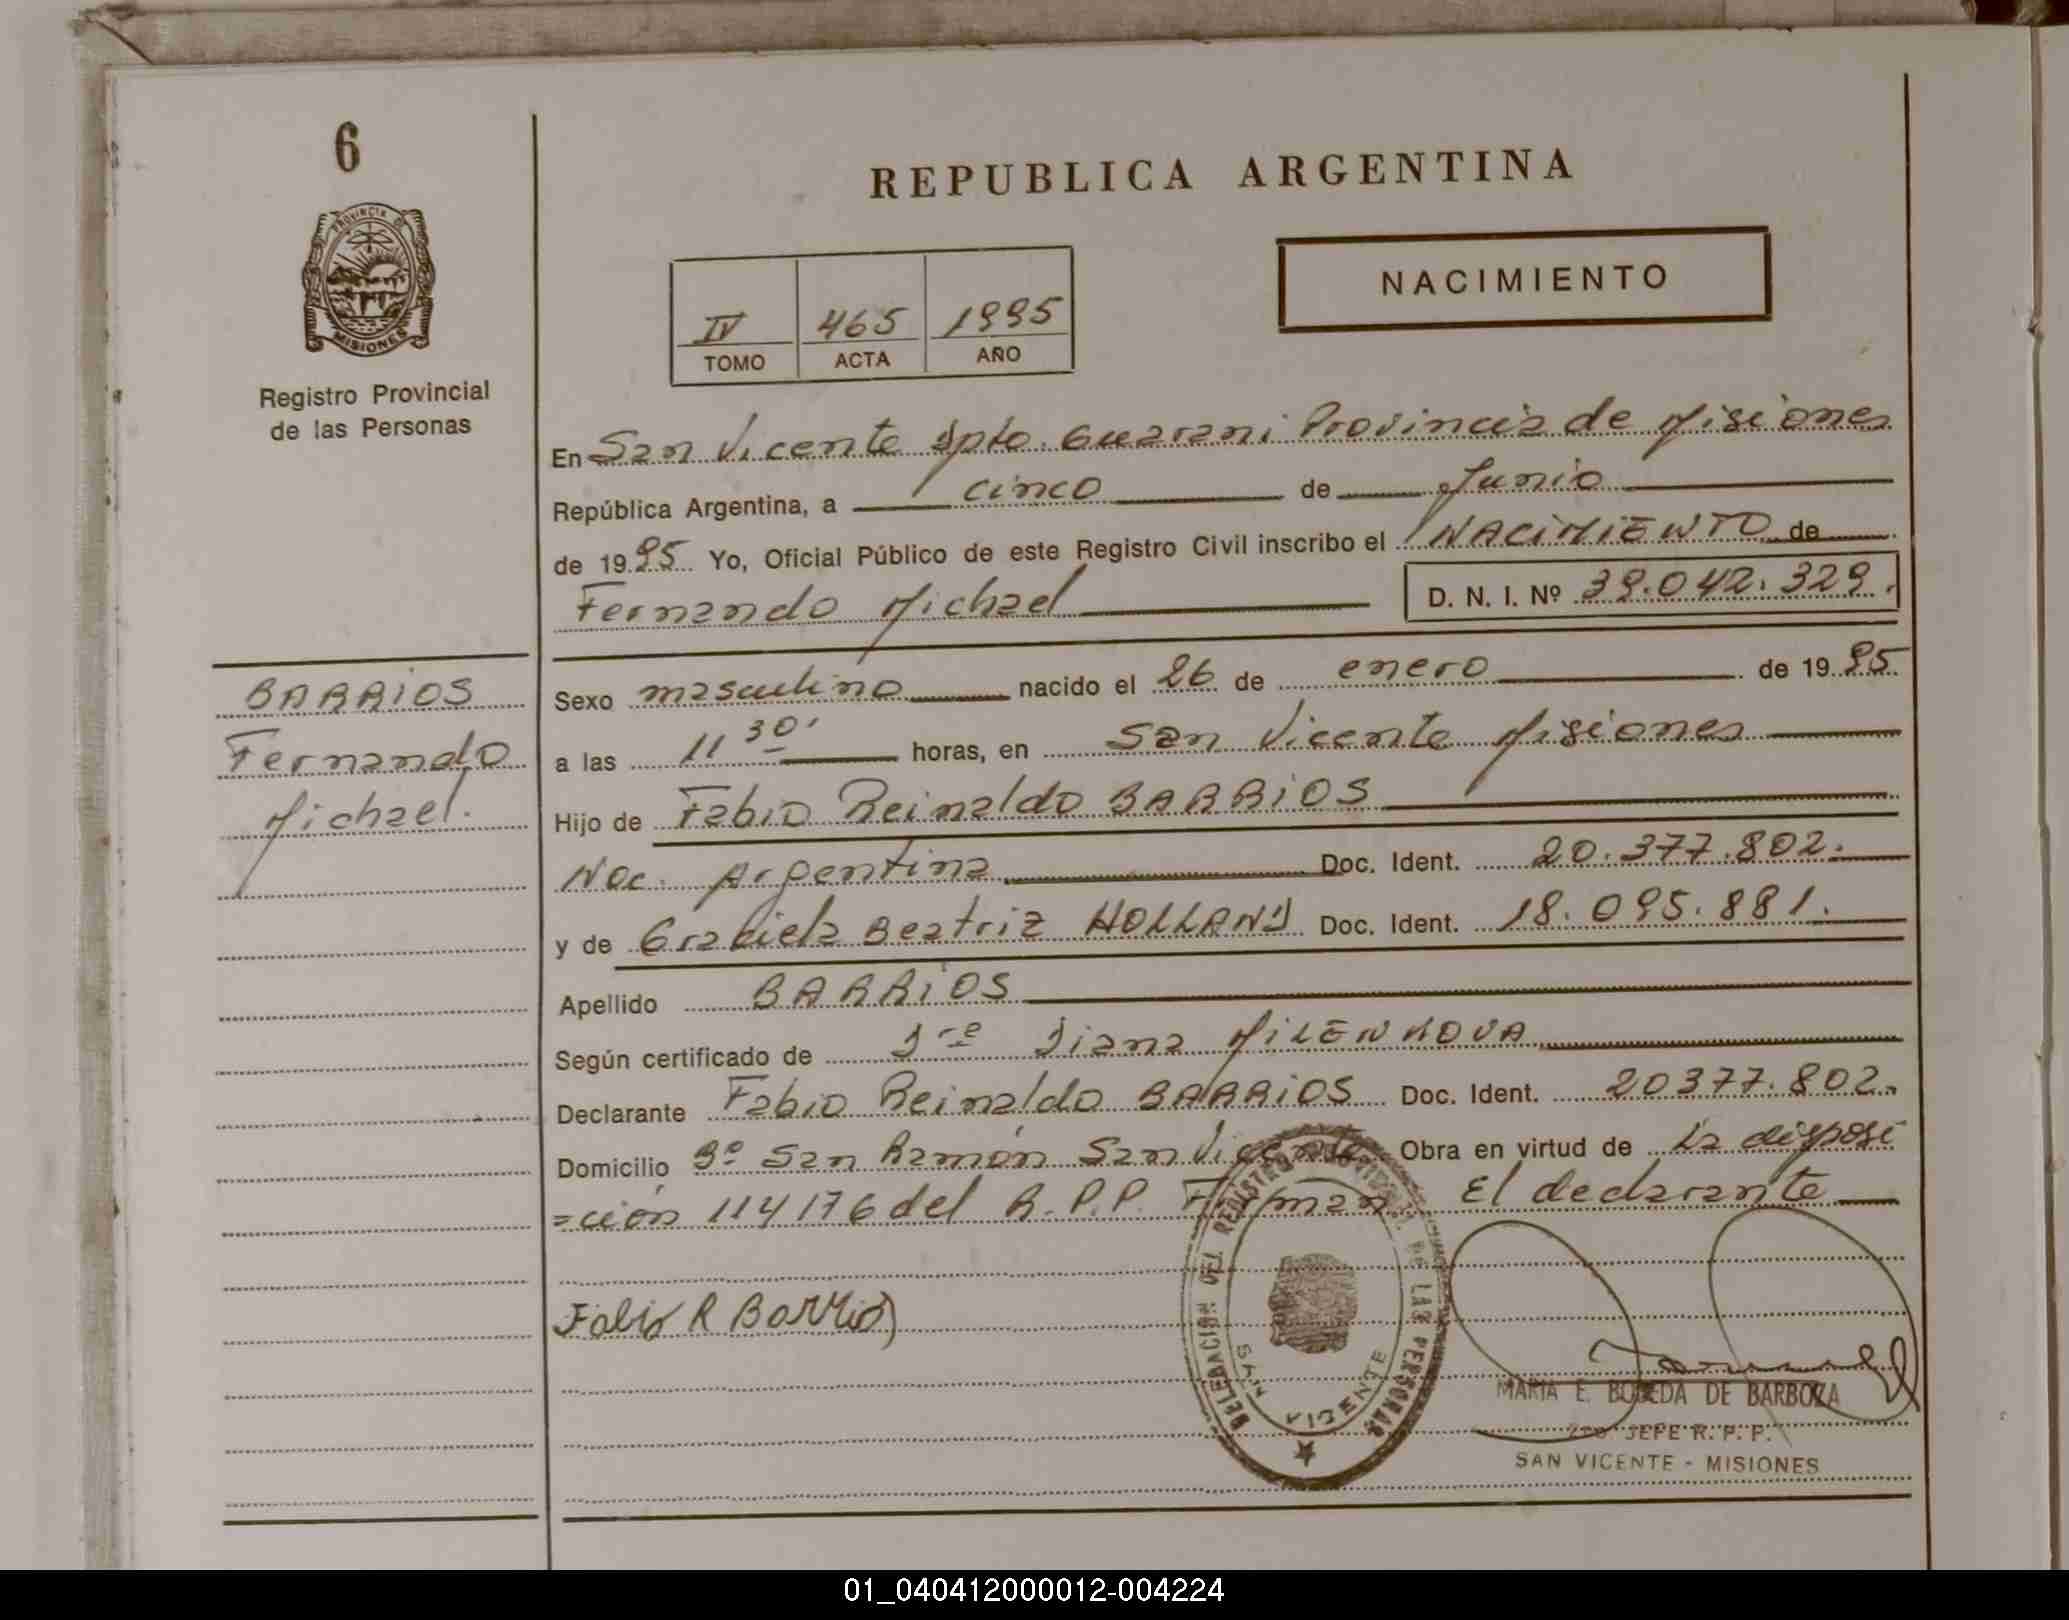 6
PROVINCIA DE
MISIONES
Registro Provincial
de las Personas
REPUBLICA ARGENTINA
NACIMIENTO
IV 465 1995
TOMO ACTA AÑO
En San Vicente Dpto. Guarani Provincia de Misiones
República Argentina, a cinco de Junio
de 1995 Yo, Oficial Público de este Registro Civil inscribo el NACIMIENTO de
Fernando Michael D. N. I. Nº 39.042.329.
BARRIOS
Fernando
Michael.
Sexo masculino nacido el 26 de enero de 1995
a las 11 30' horas, en San Vicente Misiones
Hijo de Fabio Reinaldo BARRIOS
Nac. Argentina Doc. Ident. 20.377.802.
y de Graciela Beatriz HOLLAND Doc. Ident. 18.095.881.
Apellido BARRIOS
Según certificado de Dra Diana MILENKOVA
Declarante Fabio Reinaldo BARRIOS Doc. Ident. 20377.802.
Domicilio Bº San Ramón San Vicente Obra en virtud de la disposi
=ción 114176 del R.P.P. Firman El declarante
Fabio R Barrios
DELEGACION DEL REGISTRO PROVINCIAL DE LAS PERSONAS
SAN VICENTE
MARIA E. BOBEDA DE BARBOZA
2do JEFE R. P. P.
SAN VICENTE - MISIONES
01_040412000012-004224